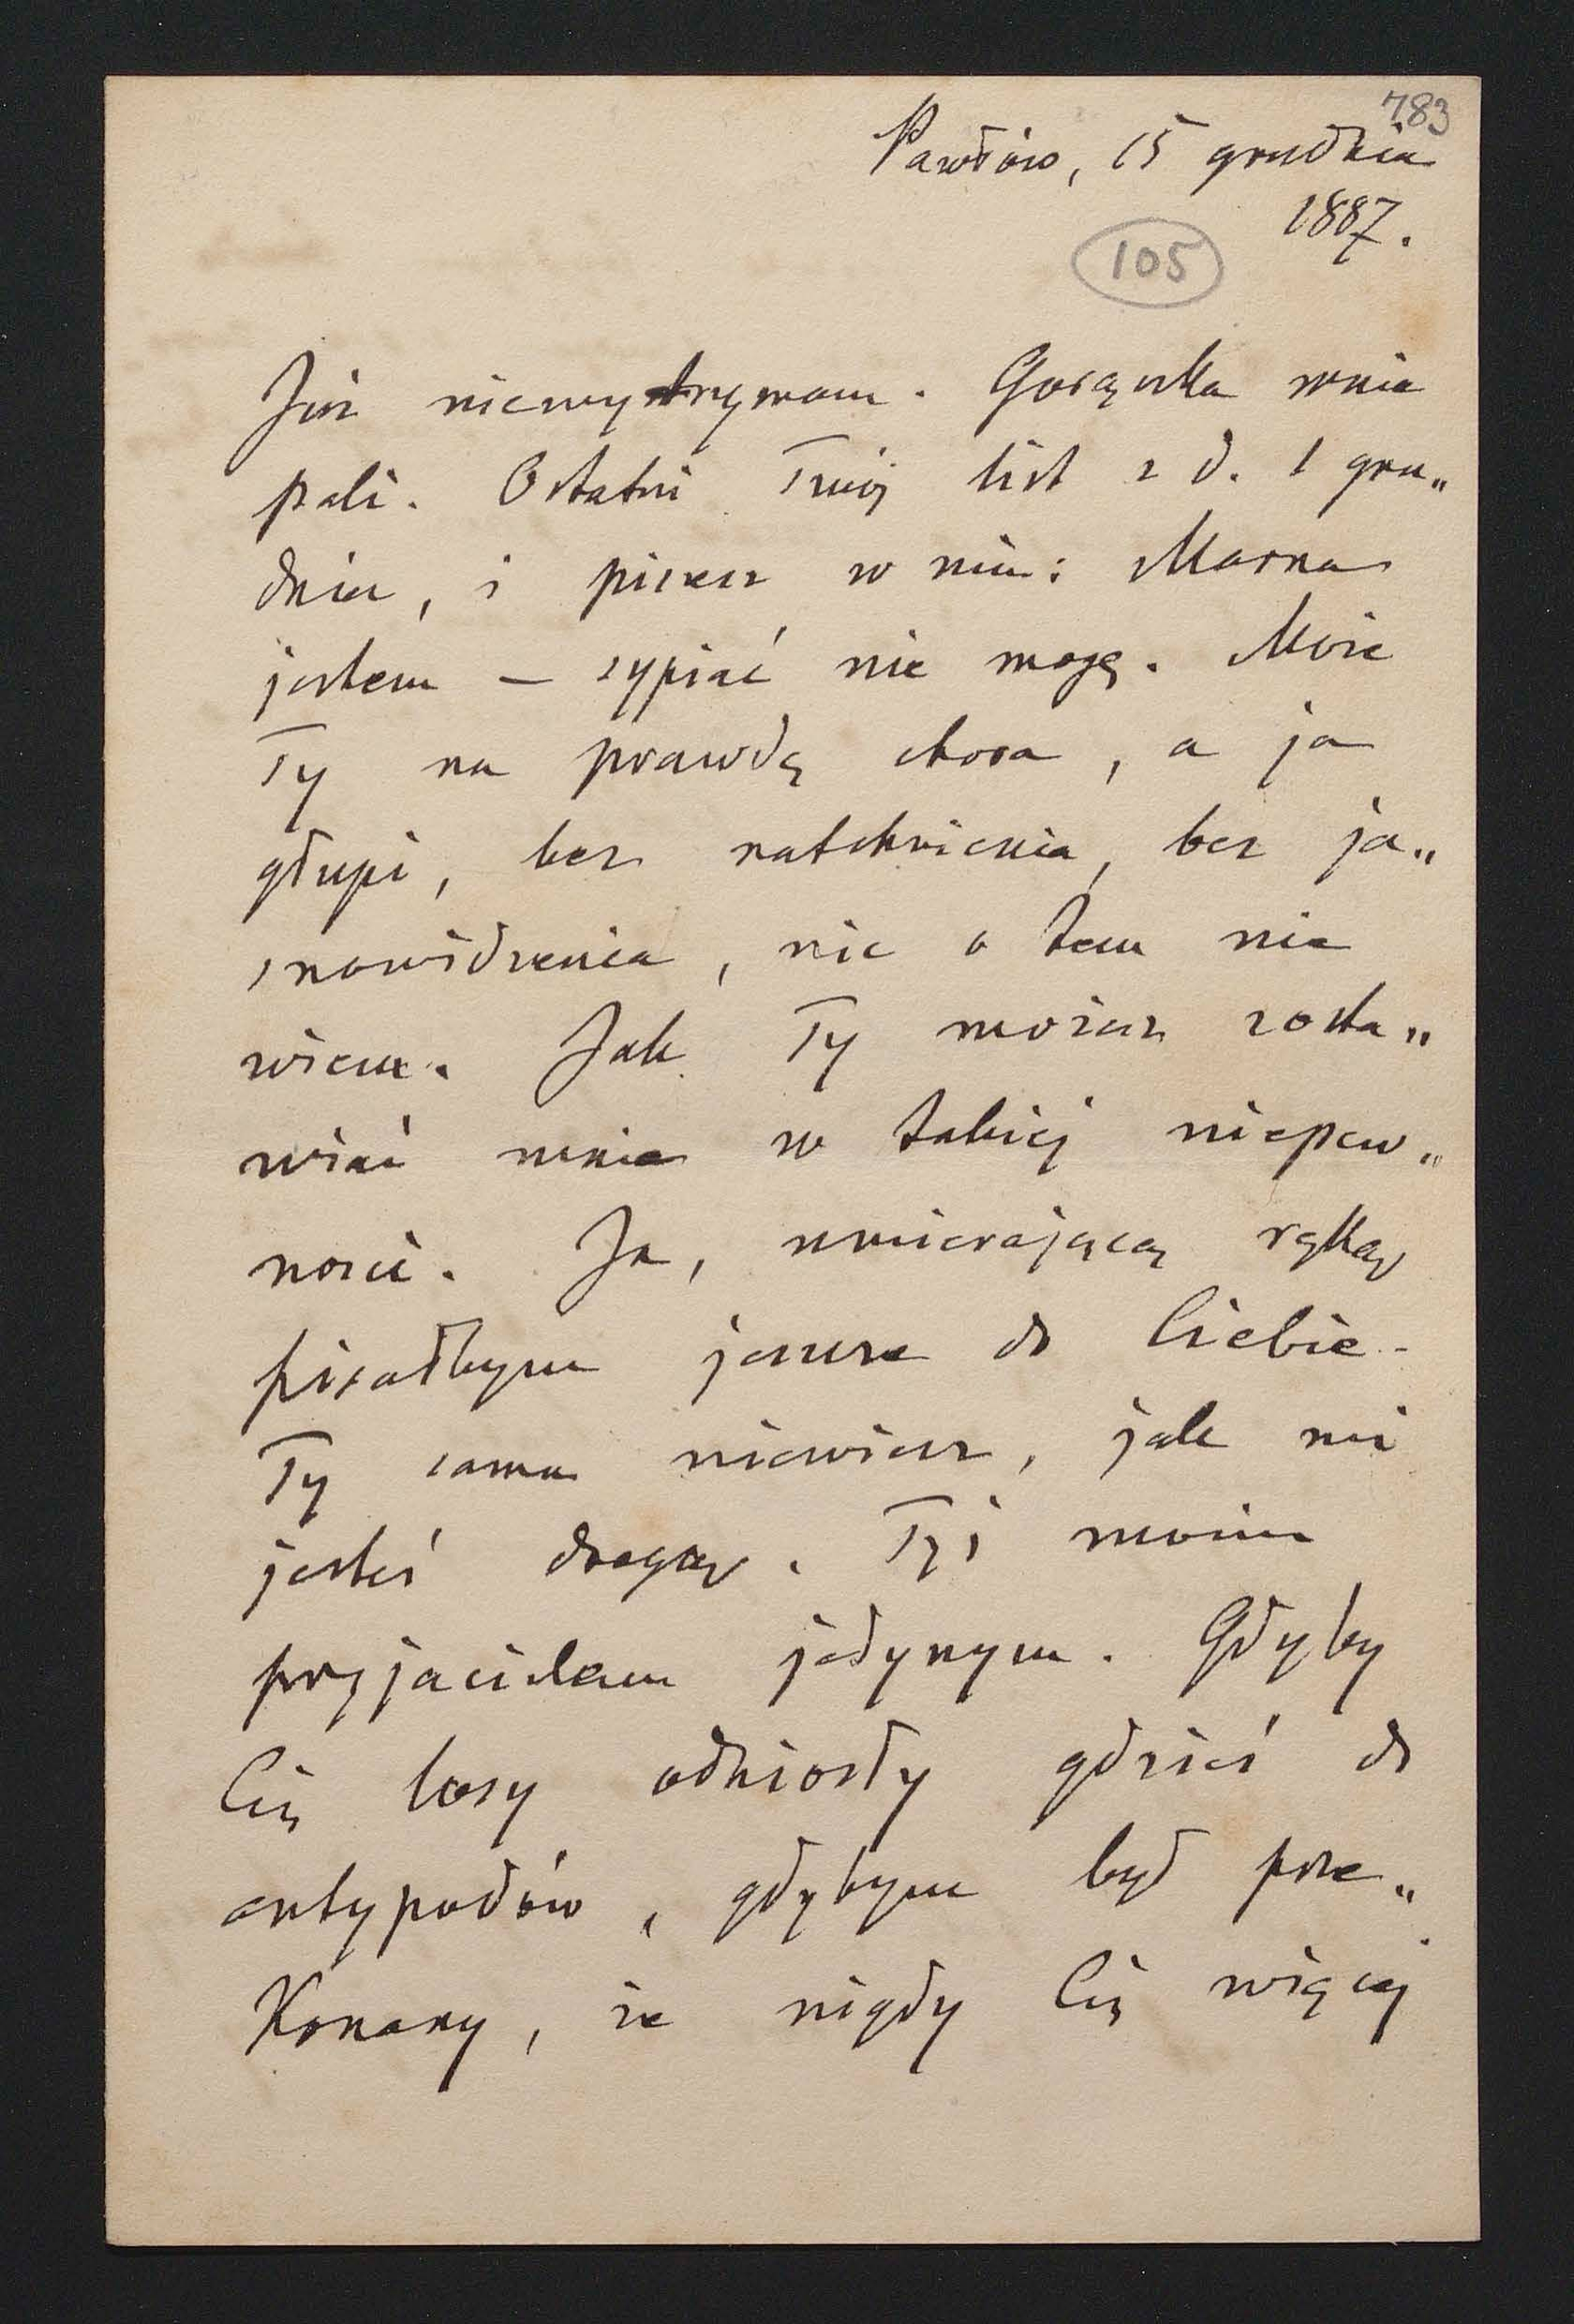 783
Pawłów, 15 grudnia
1887.
105
Już niewytrzymam. Gorączka mnie
pali. Ostatni Twój list z d. 1 gru„
dnia, i piszesz w nim: Marna
jestem — sypiać nie mogę. Może
Ty na prawdę chora, a ja
głupi, bez natchnienia, bez ja„
snowidzenia, nic o tem nie
wiem. Jak Ty możesz zosta„
wiać mnie w takiej niepew„
ności. Ja, umierającą ręką
pisałbym jeszcze do Ciebie.
Ty sama niewiesz, jak mi
jesteś drogą. Tyś moim
przyjacielem jedynym. Gdyby
Cię losy odniosły gdzieś do
antypodów, gdybym był prze„
konany, że nigdy Cię więcej